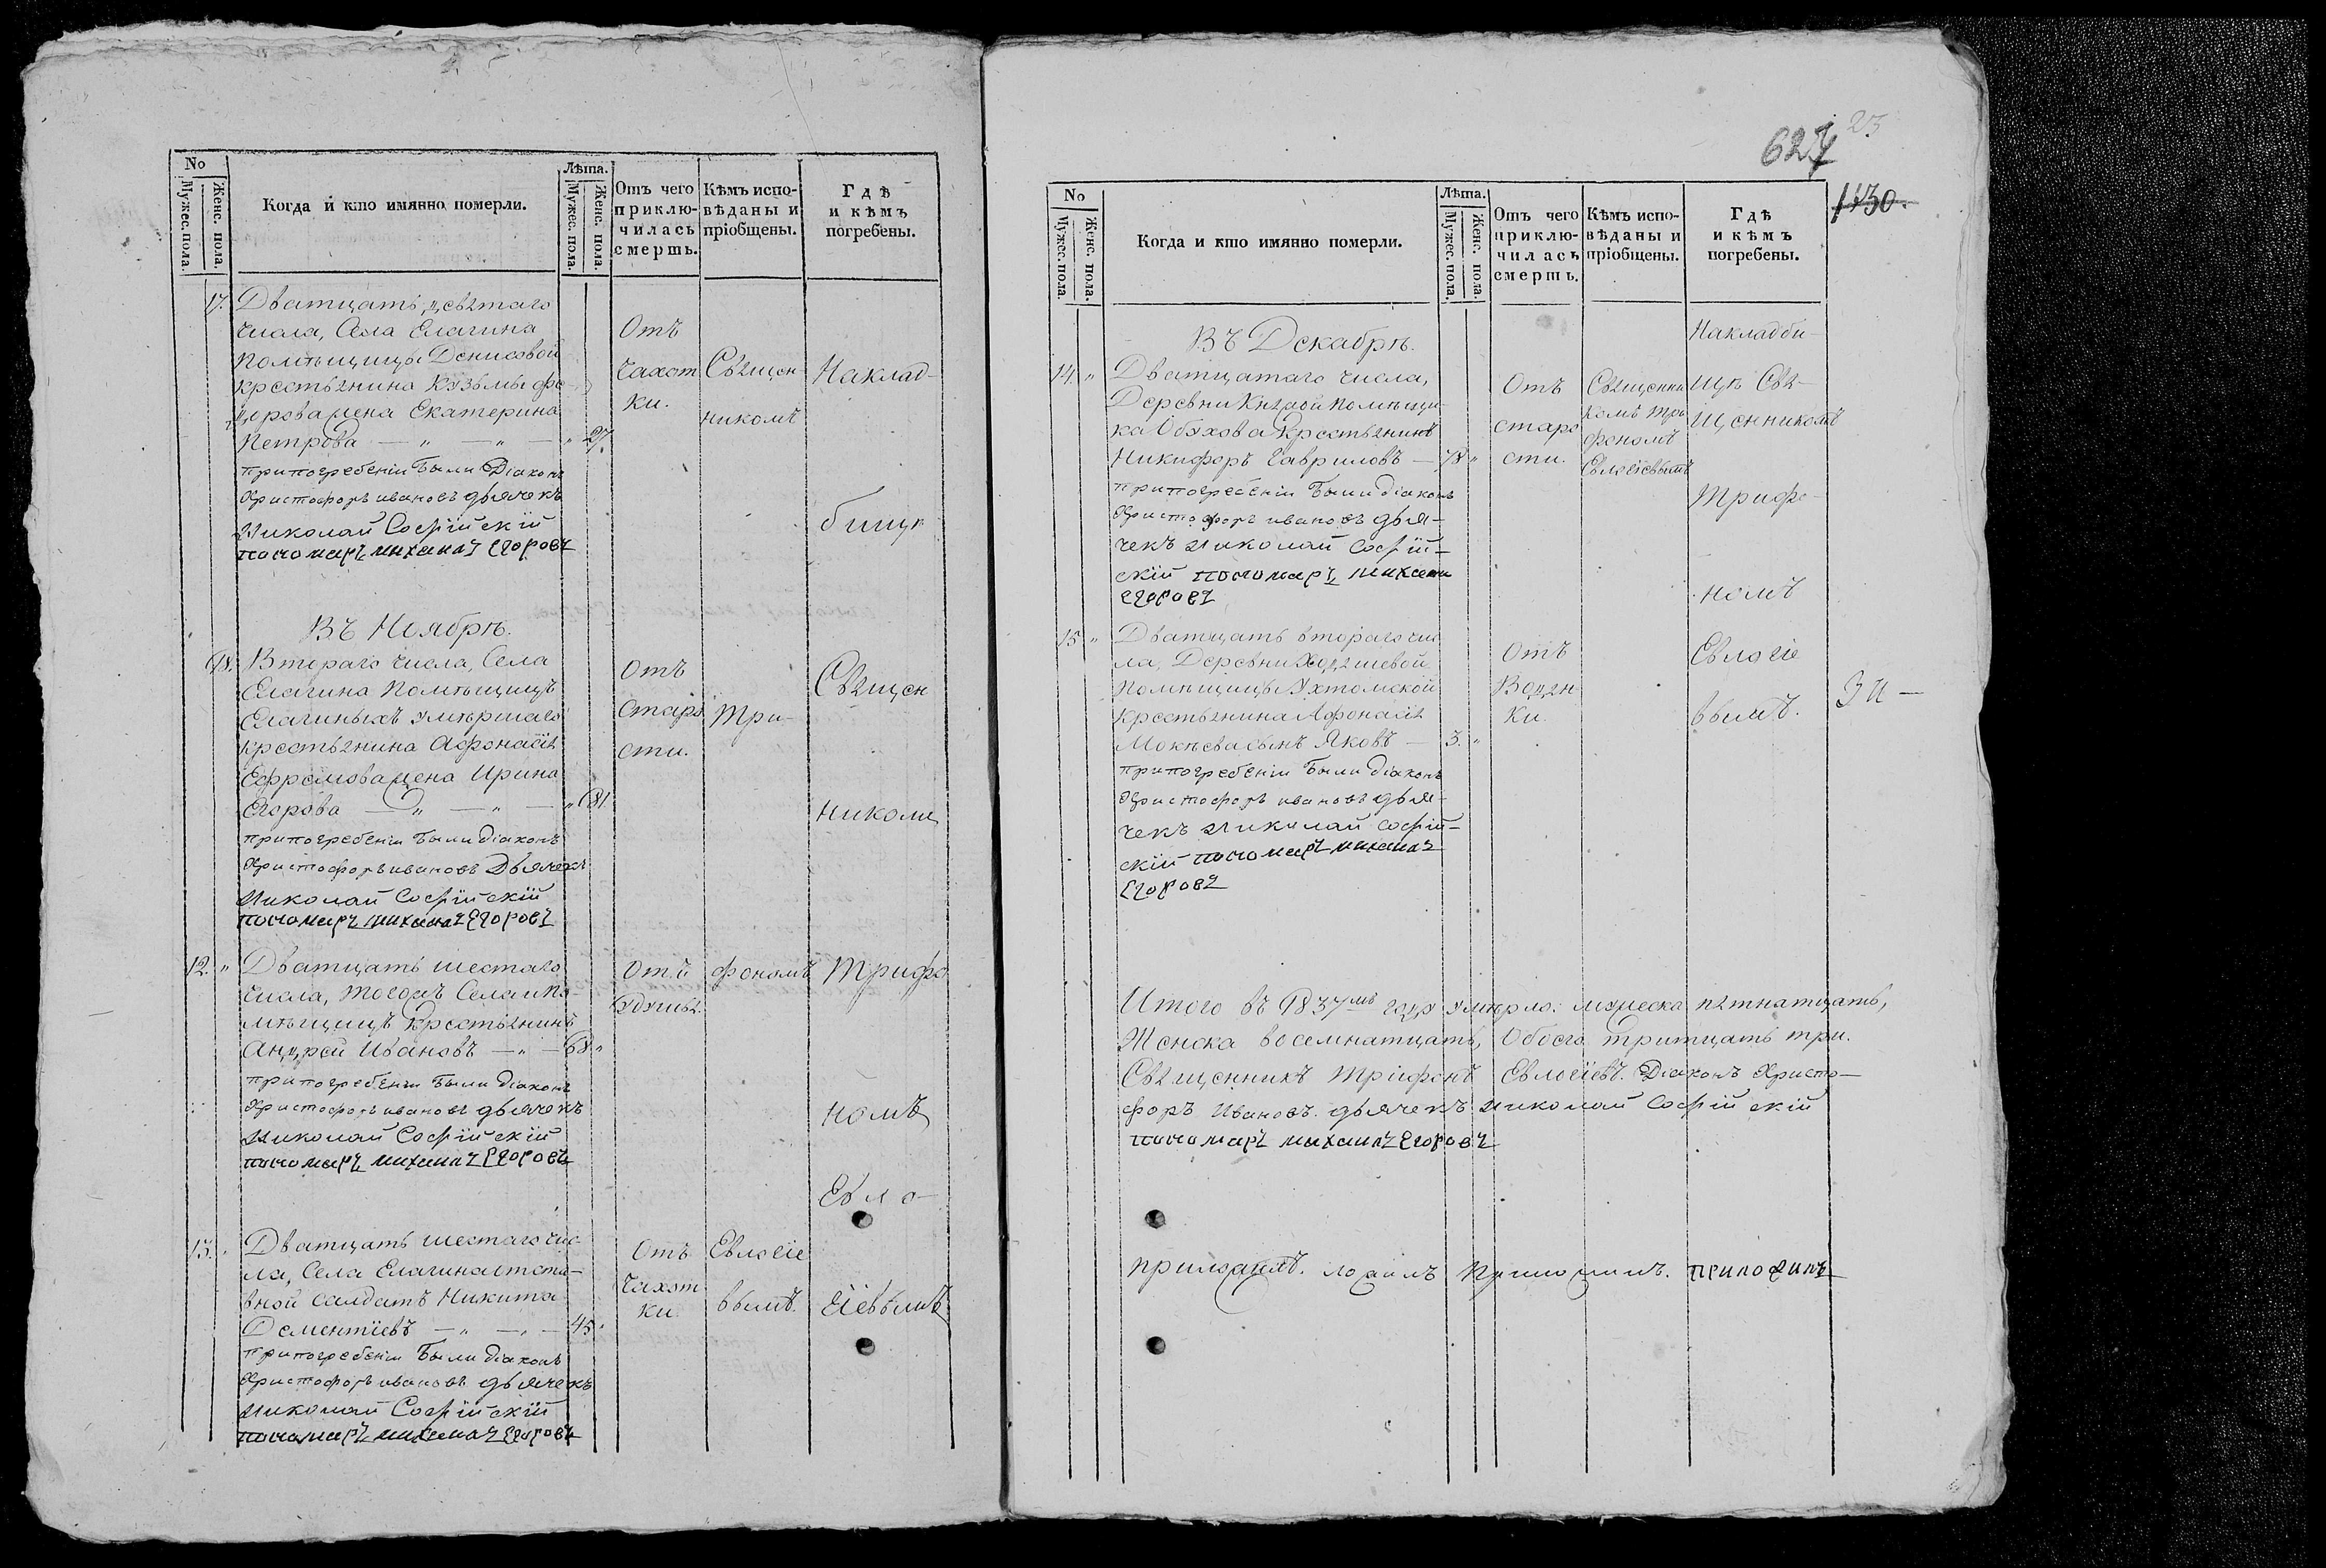 No
Мужес. пола.
Женс. пола.
Когда и кто имянно померли.
Лѣта.
Мужес. пола.
Женс. пола.
Отъ чего
приклю-
чилась
смерть.
Кѣмъ испо-
вѣданы и
пріобщены.
Гдѣ
и кѣмъ
погребены.
17. Дватцать девятаго
числа, Села Елагина
Помѣщицы Денисовой
крестьянина Кузьмы Фе-
дорова жена Екатерина
Петрова — „ — „ — „ 27.
при погребеніи были Діаконъ
Христофоръ ивановъ дьячекъ
Николай Софійскій
пономарь михаилъ Егоровъ
Отъ
чахот
ки.
Священ
никомъ
Наклад-
бищѣ
Въ Ноябрѣ.
18. Втораго числа, Села
Елагина Помѣщицъ
Елагиныхъ умершаго
крестьянина Афонасія
Ефремова жена Ирина
Егорова — „ — „ — „ 81
при погребеніи были діаконъ
Христофоръ ивановъ Дьячекъ
Николай Софійскій
пономарь михаилъ Егоровъ
Отъ
Старо
сти.
Три-
Священ
никомъ
12. „ Дватцать шестаго
числа, тогожъ Села и По-
мѣщицъ крестьянинъ
Андрей Ивановъ — „ — 68 „
при погребеніи были діаконъ
Христофоръ ивановъ дьячекъ
Николай Софійскій
пономарь михаилъ Егоровъ
Отъ
удушья.
фономъ
Трифо
номъ
Евло-
13. „ Дватцать шестаго чис-
ла, Села Елагина отста-
вной салдатъ Никита
Дементіевъ — „ — „ — 45 „
при погребеніи были діаконъ
Христофоръ ивановъ дьячекъ
Николай Софійскій
пономарь михаилъ Егоровъ
Отъ
чахот
ки.
Евлогіе
вымъ.
гіевымъ
23
627
1430.
No
Мужес. пола.
Женс. пола.
Когда и кто имянно померли.
Лѣта.
Мужес. пола.
Женс. пола.
Отъ чего
приклю-
чилась
смерть.
Кѣмъ испо-
вѣданы и
пріобщены.
Гдѣ
и кѣмъ
погребены.
Въ Декабрѣ.
14. „ Дватцатаго числа,
Деревни Князой Помѣщи-
ка Обухова Крестьянинъ
Никифоръ Гавриловъ — 78 „
при погребеніи были діаконъ
Христофоръ ивановъ дья-
чекъ Николай Софій-
скій пономарь михаилъ
Егоровъ
Отъ
старо
сти.
Священни
комъ Три
фономъ
Евлогіевымъ
Накладби-
щѣ Свя-
щенникомъ
Трифо-
номъ
15. „ Дватцать втораго чис
ла, Деревни Ходяшевой
Помѣщицы Ухтомской
Крестьянина Афонасія
Мокѣева сынъ Яковъ — 3. „
при погребеніи были діаконъ
Христофоръ ивановъ дья-
чекъ Николай Софій-
скій пономарь михаилъ
Егоровъ
Отъ
Водян
ки.
Евлогіе
вымъ.
Итого въ 1837мъ году умерло: мужеска пятнатцать,
Женска восемнатцать, Обоего тритцать три.
Священникъ Трифонъ Евлогіевъ. Діаконъ Христо-
форъ Ивановъ. дьячекъ Николай Софійскій
пономарь михаилъ Егоровъ